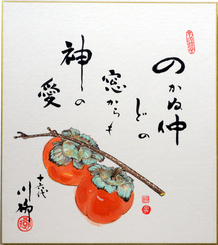 のかぬ仲
どの
窓からも
神の
愛
十六代
川柳